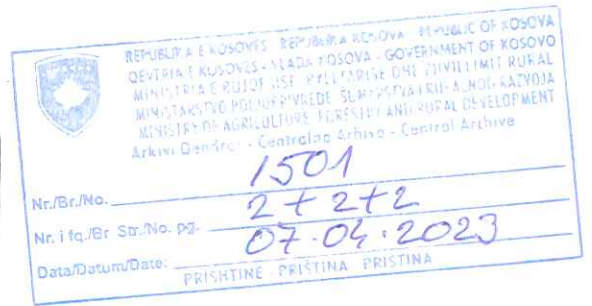 REPUBLIKA E KOSOVËS - REPUBLIKA KOSOVA - REPUBLIC OF KOSOVA
QEVERIA E KOSOVËS - VLADA KOSOVA - GOVERNMENT OF KOSOVO
MINISTRIA E BUJQËSISË, PYLLTARISË DHE ZHVILLIMIT RURAL
MINISTARSTVO POLJOPRIVREDE ŠUMARSTVA I RURALNOG RAZVOJA
MINISTRY OF AGRICULTURE, FORESTRY AND RURAL DEVELOPMENT
Arkivi Qendror - Centralna Arhiva - Central Archive
Nr./Br./No. 1501
Nr. i fq./Br Str./No. pg. 2+2+2
Data/Datum/Date: 07.04.2023
PRISHTINË - PRIŠTINA PRISTINA